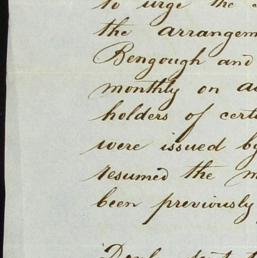 to urge the
the arrangem
Bengough and
monthly on a
holders of cert
were issued by
resumed the m
been previously